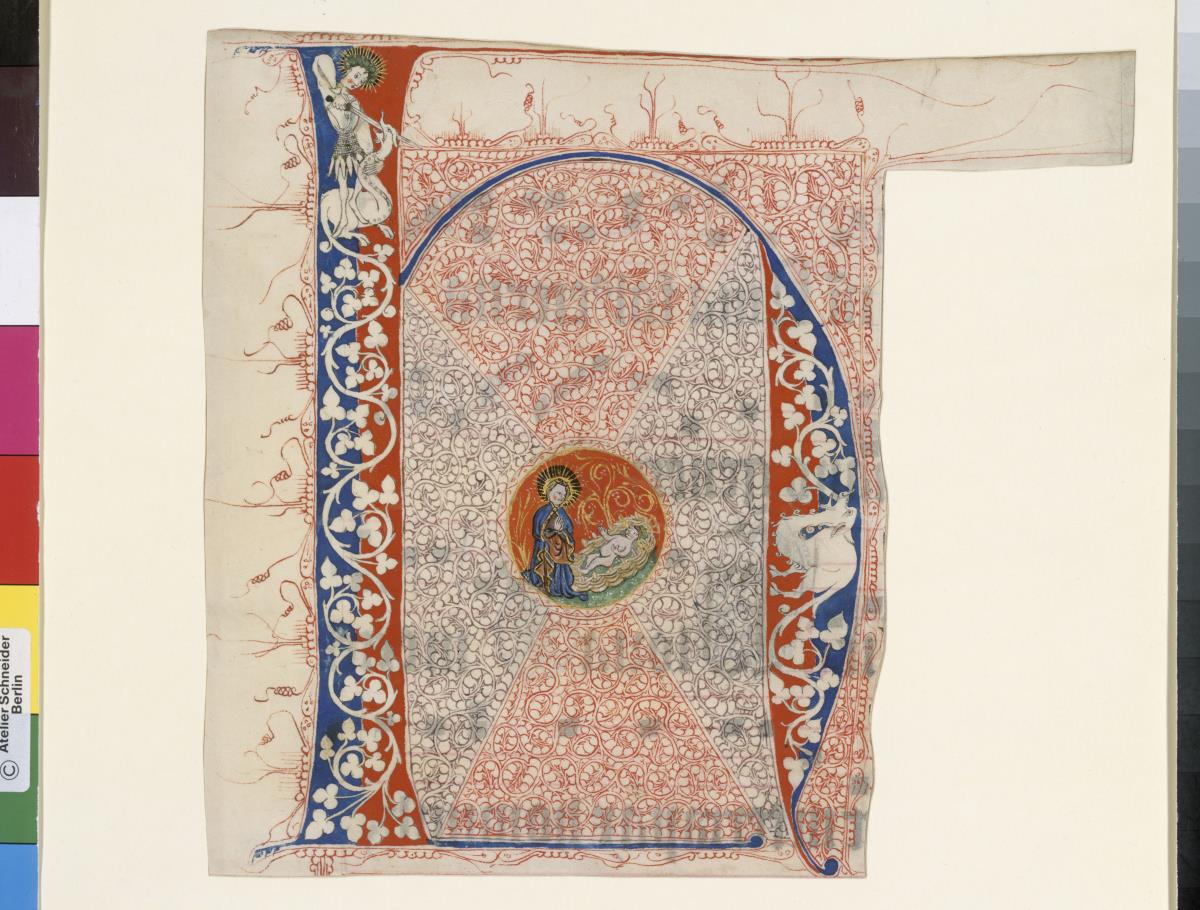 © Atelier Schneider
Berlin